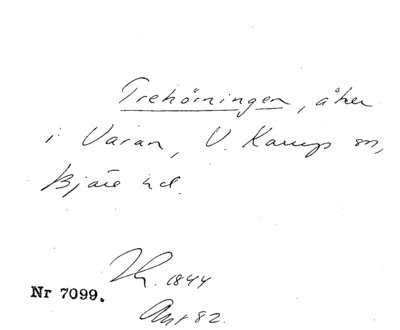 Trehörningen, åker
i Varan, V. Karups sn,
Bjäre hd.
1844
Nr 7099.
82.